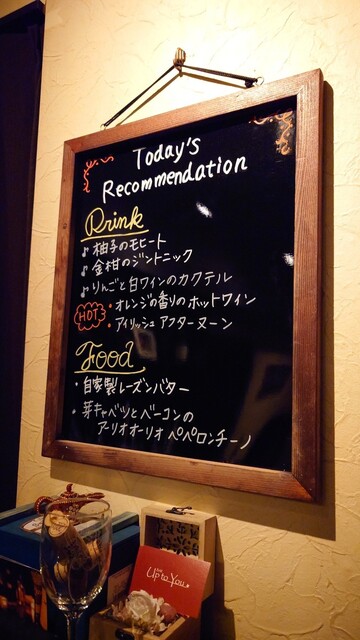 Today's
Recommendation
Drink
♪ 柚子のモヒート
♪ 金柑のジントニック
♪ りんごと白ワインのカクテル
HOT ・オレンジの香りのホットワイン
・アイリッシュアフターヌーン
Food
・自家製レーズンバター
・芽キャベツとベーコンの
アーリオオーリオペペロンチーノ
Up to You